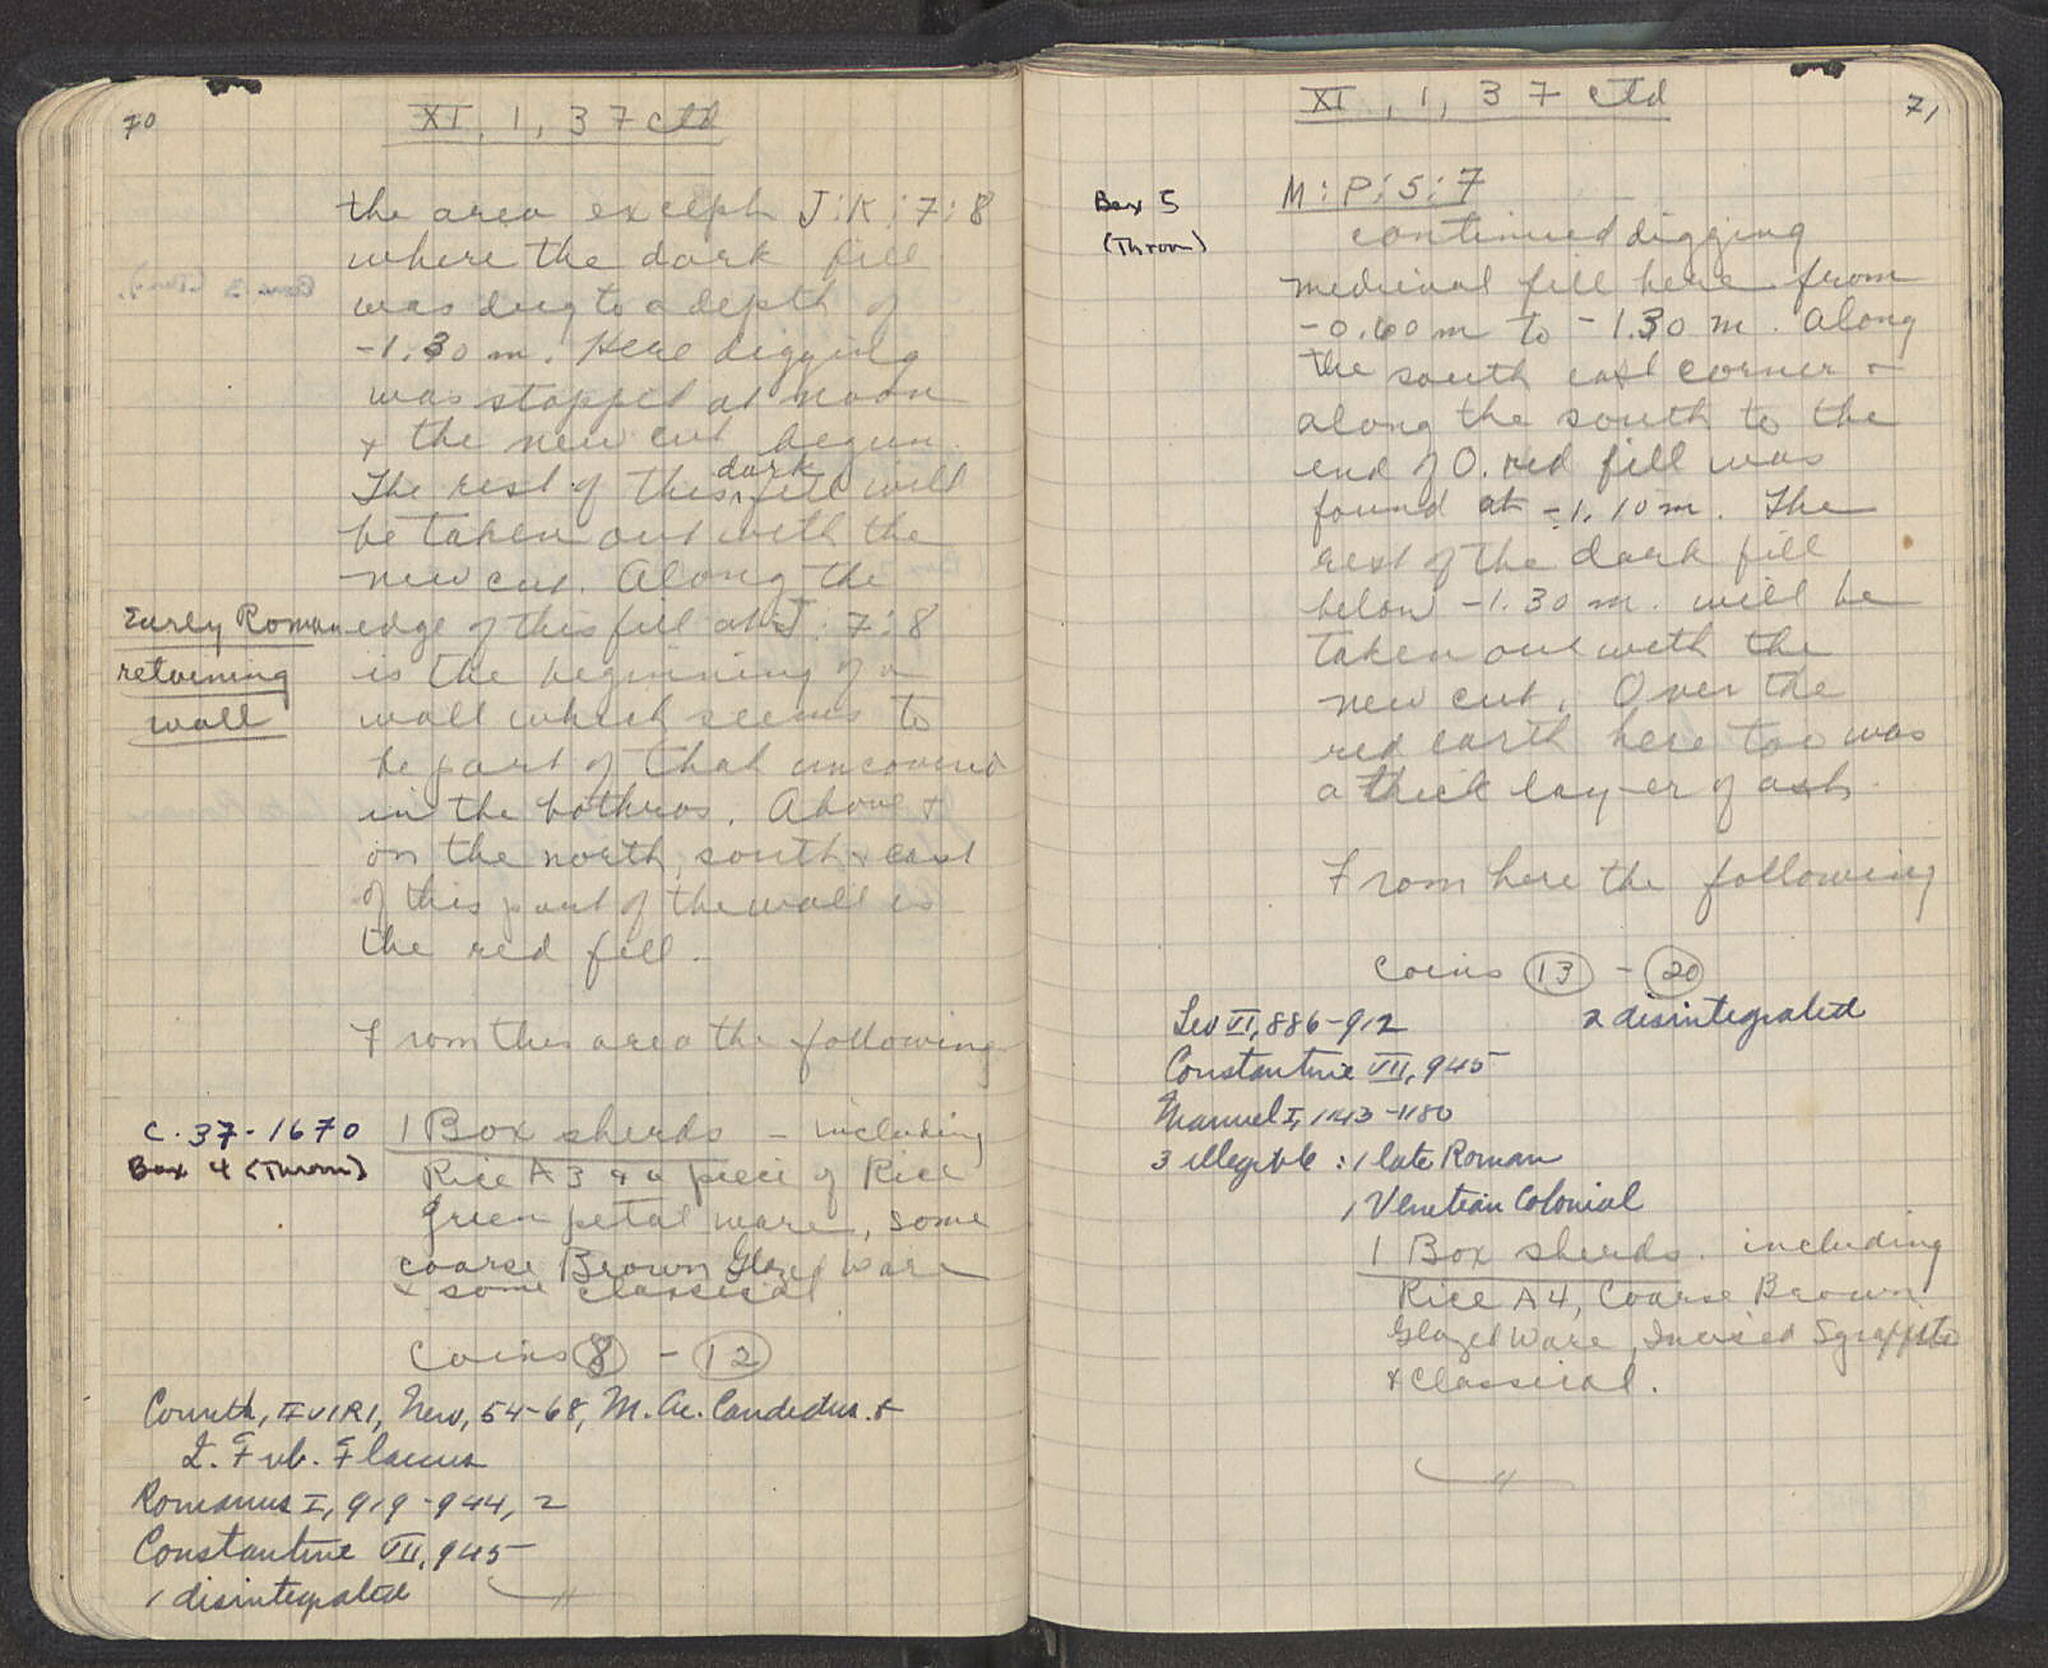 70
XI, 1, 37 ctd
the area except J:K:7:8
where the dark fill
was dug to a depth of
-1.30 m. Here digging
was stopped at noon
+ the new cut begun.
dark
The rest of this fill will
be taken out with the
new cut. Along the
Early Roman
retaining
wall
edge of this fill at J:7:8
is the beginning of a
wall which seems to
be part of that uncovered
in the bothros. Above +
on the north, south + east
of this part of the wall is
the red fill.
From this area the following
C.37-1670
Box 4 (Thron)
1 Box sherds - including
Rice A3 + a piece of Rice
Green petal ware, some
coarse Brown Glazed Ware
+ some classical
Coins 8 - 12
Corinth, IIVIRI, Nero, 54-68, M. Ac. Candidus +
Q. Fulv. Flaccus
Romanus I, 919-944, 2
Constantine VII, 945
1 disintegrated
71
XI, 1, 37 ctd
Box 5
(Thron)
M:P:5:7
continued digging
medieval fill here from
-0.60 m to -1.30 m. Along
the south east corner +
along the south to the
end of O. red fill was
found at -1.10 m. The
rest of the dark fill
below -1.30 m. will be
taken out with the
new cut. Over the
red earth here too was
a thick lay-er of ash.
From here the following
Coins 13 - 20
Leo VI, 886-912
2 disintegrated
Constantine VII, 945
Manuel I, 1143-1180
3 illegible : 1 late Roman
1 Venetian Colonial
1 Box sherds. including
Rice A4, Coarse Brown
Glazed Ware, Incised Sgraffito
+ Classical.